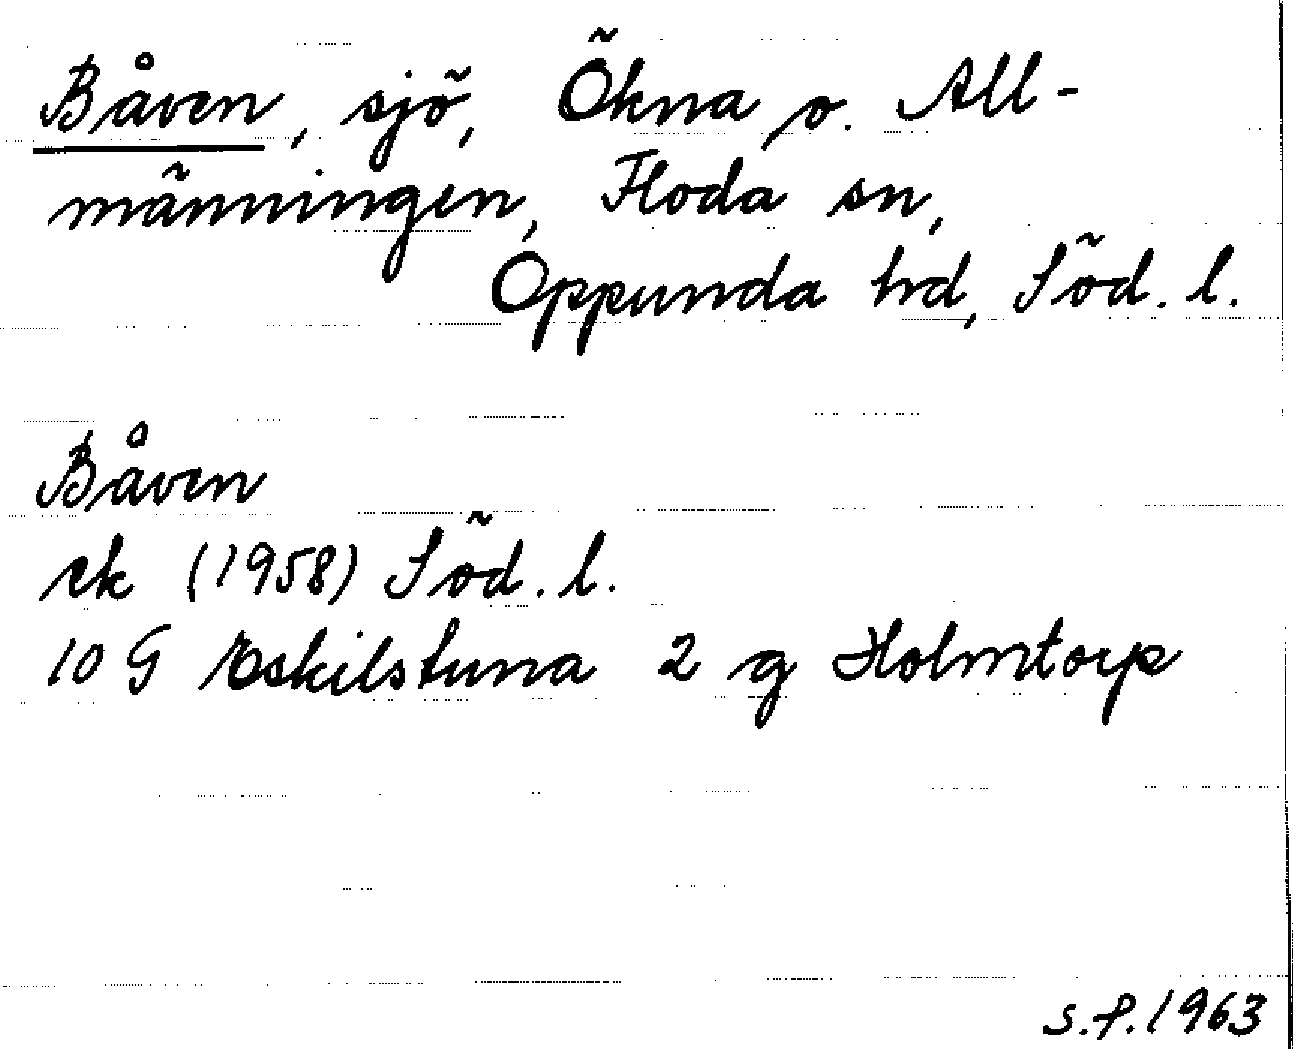 Båven, sjö, Ökna o. All-
männingen, Floda sn,
Oppunda hd, Söd. l.
Båven
ek (1958) Söd. l.
10 G Eskilstuna 2 g Holmtorp
S.P. 1963